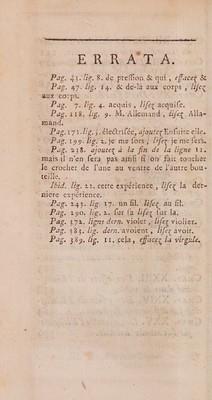 ERRATA.
Pag. 43. lig. 8. de pression & qui, effacez &
Pag. 47. lig. 14. & de-là aux corps, lisez
aux corps.
Pag. 7. lig. 4. acquis, lisez acquise.
Pag. 118. lig. 9. M. Allemand, lisez Alla-
mand.
Pag. 171. lig. j. électrisée, ajoutez Ensuite elle.
Pag. 199. lig. 2. je me sers, lisez je me sers.
Pag. 238. ajoutez à la fin de la ligne 12.
mais il n'en sera pas ainsi si on fait toucher
le crochet de l'une au ventre de l'autre bou-
teille.
Ibid. lig. 21. cette expérience, lisez la der-
niere expérience.
Pag. 243. lig. 17. un fil. lisez au fil.
Pag. 290. lig. 2. sur sa lisez sur la.
Pag. 372. ligne dern. violet, lisez violier.
Pag. 383. lig. dern. avoient, lisez avoit.
Pag. 389. lig. 11, cela, effacez la virgule.